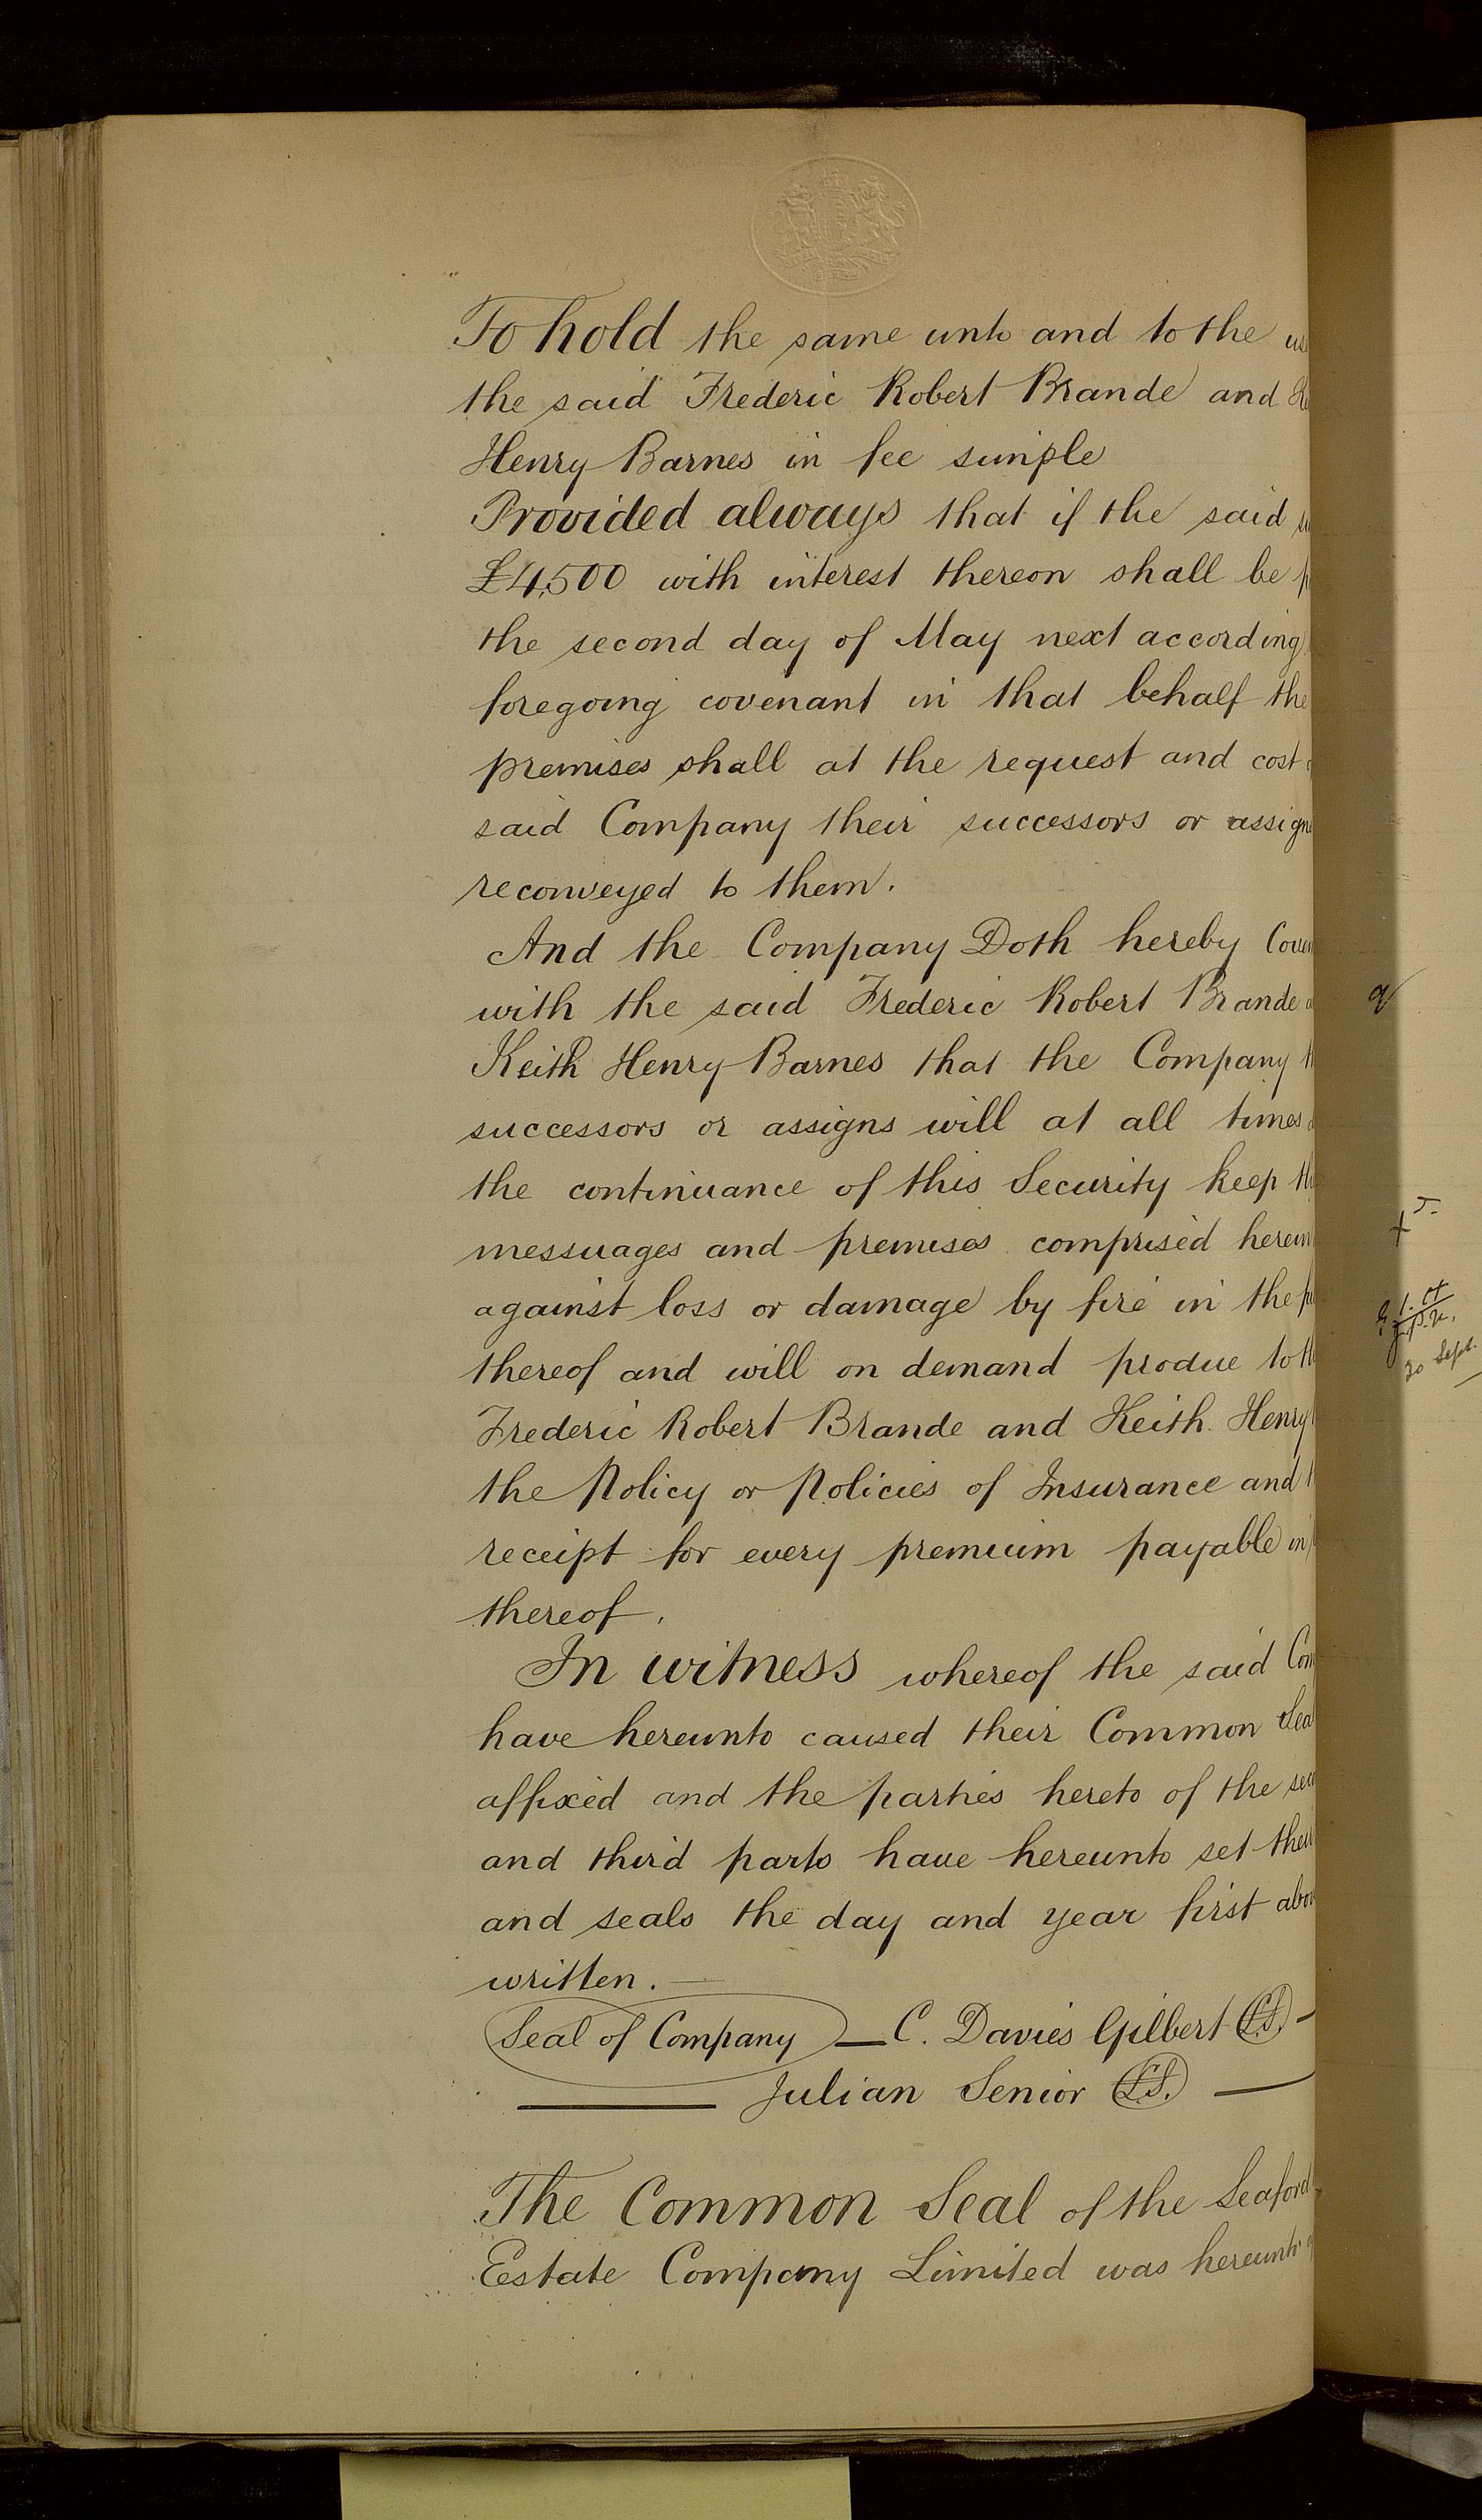 To hold the same unto and to the
the said Frederic Robert Brande and
Henry Barnes in fee simple
Provided always that if the said
£4,500 with interest thereon shall be
the second day of May next according
foregoing covenant in that behalf the
premises shall at the request and cost
said Company their successors or assign
reconveyed to them.
And the Company Doth hereby Coven
with the said Frederic Robert Brande
Keith Henry Barnes that the Company
successors or assigns will at all times
the continuance of this Security keep th
messuages and premises comprised herein
against loss or damage by fire in the
thereof and will on demand produe to th
Frederic Robert Brande and Keith Henry
the Policy or Policies of Insurance and
receipt for every premium payable in
thereof.
In witness whereof the said Com
have hereunto caused their Common Seal
affixed and the parties hereto of the sec
and third parts have hereunto set their
and seals the day and year first abov
written.—
Seal of Company — C. Davies Gilbert L.S. —
Julian Senior L.S. —
The Common Seal of the Seaford
Estate Company Limited was hereunto
30 Sept.